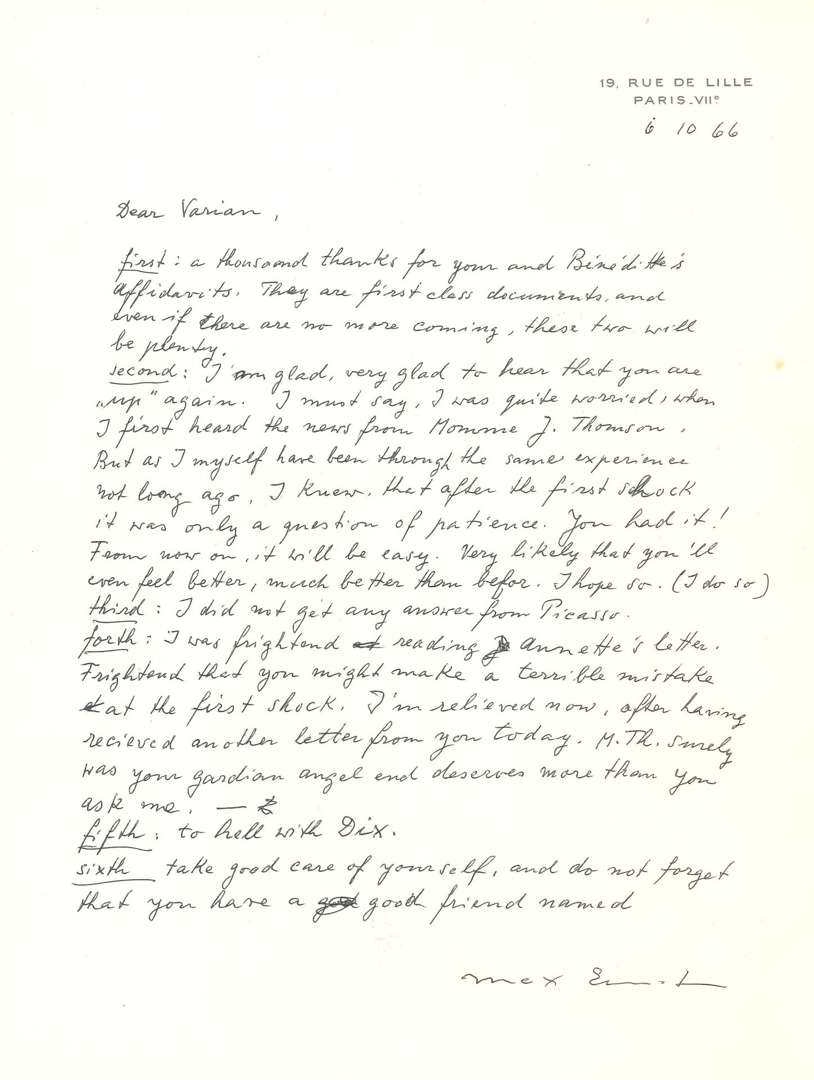 19, RUE DE LILLE
PARIS-VIIe
6 10 66
Dear Varian,
first: a thousand thanks for your and Bénéditte's
affidavits. They are first class documents, and
even if there are no more coming, these two will
be plenty.
second: I am glad, very glad to hear that you are
„up" again. I must say, I was quite worried, when
I first heard the news from Momme J. Thomson.
But as I myself have been through the same experience
not long ago, I knew, that after the first shock
it was only a question of patience. You had it!
From now on, it will be easy. Very likely that you'll
even feel better, much better than befor. I hope so. (I do so)
third: I did not get any answer from Picasso.
forth: I was frightend reading Annette's letter.
Frightend that you might make a terrible mistake
at the first shock. I'm relieved now, after having
recieved another letter from you today. M.Th. surely
was your gardian angel end deserves more than you
ask me. —
fifth: to hell with Dix.
sixth take good care of yourself, and do not forget
that you have a good friend named
max Ernst